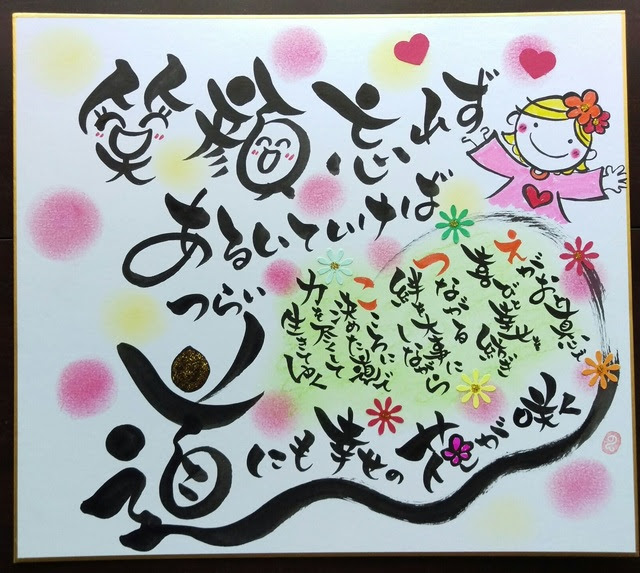 笑顔忘れず
あるいていけば
つらい
道
にも幸せの花が咲く
えがお
喜びと幸せを紡ぎ
つながる
絆を大事に
しながら
こころに
決めた道で
力を尽くして
生きてゆく